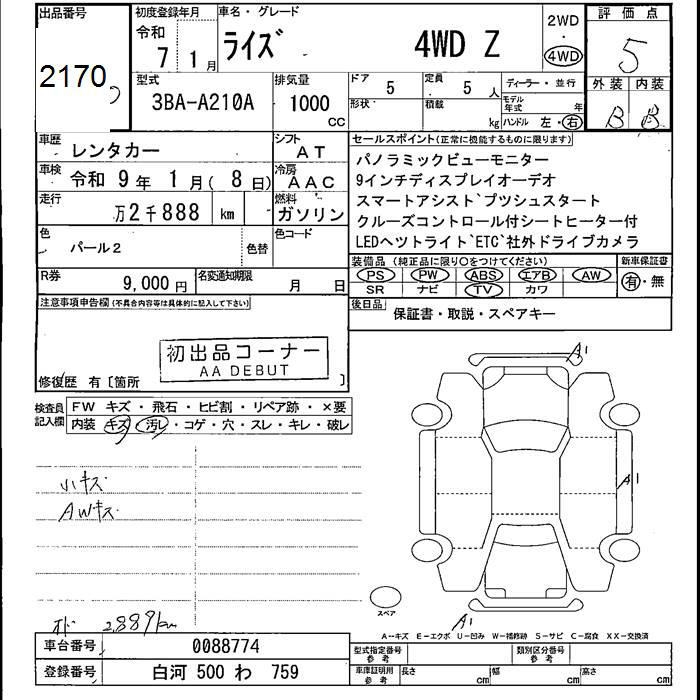 出品番号
2170
初度登録年月
令和
7 1月
車名・グレード
ライズ 4WD Z
2WD
・
4WD
評価点
5
外装 内装
B B
型式
3BA-A210A
排気量
1000
CC
ドア
5
定員
5 人
形状
積載
kg
ディーラー・並行
モデル年式 年
ハンドル 左・右
車歴
レンタカー
シフト
AT
車検
令和 9年 1月( 8日)
冷房
AAC
走行
万2千888 km
燃料
ガソリン
色
パール2
色替
色コード
R券
9,000円
名変通知期限
月 日
セールスポイント(正常に機能するものに限ります)
パノラミックビューモニター
9インチディスプレイオーデオ
スマートアシスト プツシュスタート
クルーズコントロール付シートヒーター付
LEDヘツトライト゛ETC゛社外ドライブカメラ
装備品 (純正品に限り○をつけてください)
PS PW ABS エアB AW
SR ナビ TV カワ
新車保証書
有・無
後日品
保証書・取説・スペアキー
注意事項申告欄(不具合内容等は具体的に記入して下さい)
初出品コーナー
AA DEBUT
修復歴 有〔箇所 〕
検査員記入欄
FW キズ・飛石・ヒビ割・リペア跡・×要
内装 キズ・汚レ・コゲ・穴・スレ・キレ・破レ
小キズ
AWキズ
オド 2,889km
A1
A1
A1
スペア
A--キズ E--エクボ U--凹み W--補修跡 S--サビ C--腐食 XX--交換済
車台番号
0088774
登録番号
白河 500 わ 759
型式指定番号
参考
類別区分番号
参考
車庫証明用
参考
長さ cm
幅 cm
高さ cm